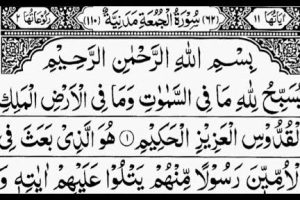 اٰیَاتُهَا ۱۱ (۶۲) سُوْرَةُ الْجُمُعَةِ مَدَنِیَّةٌ (۱۱۰) رُكُوْعَاتُهَا ۲
بِسْمِ اللّٰهِ الرَّحْمٰنِ الرَّحِیْمِ
یُسَبِّحُ لِلّٰهِ مَا فِی السَّمٰوٰتِ وَمَا فِی الْاَرْضِ الْمَلِكِ
الْقُدُّوْسِ الْعَزِیْزِ الْحَكِیْمِ ۱ هُوَ الَّذِیْ بَعَثَ فِی
الْاُمِّیّٖنَ رَسُوْلًا مِّنْهُمْ یَتْلُوْا عَلَیْهِمْ اٰیٰتِهٖ وَ